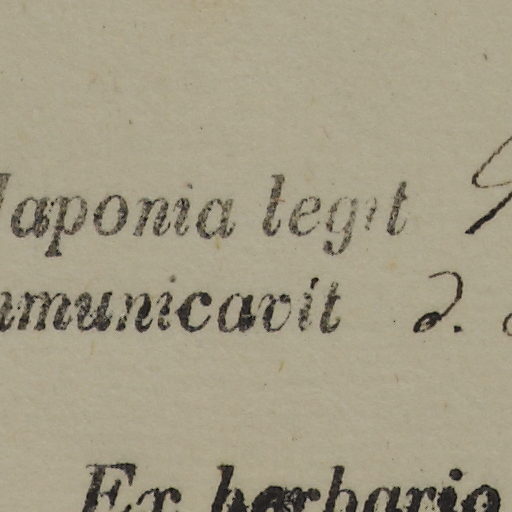 Japonia legit
mmunicavit d.
Ex herbario